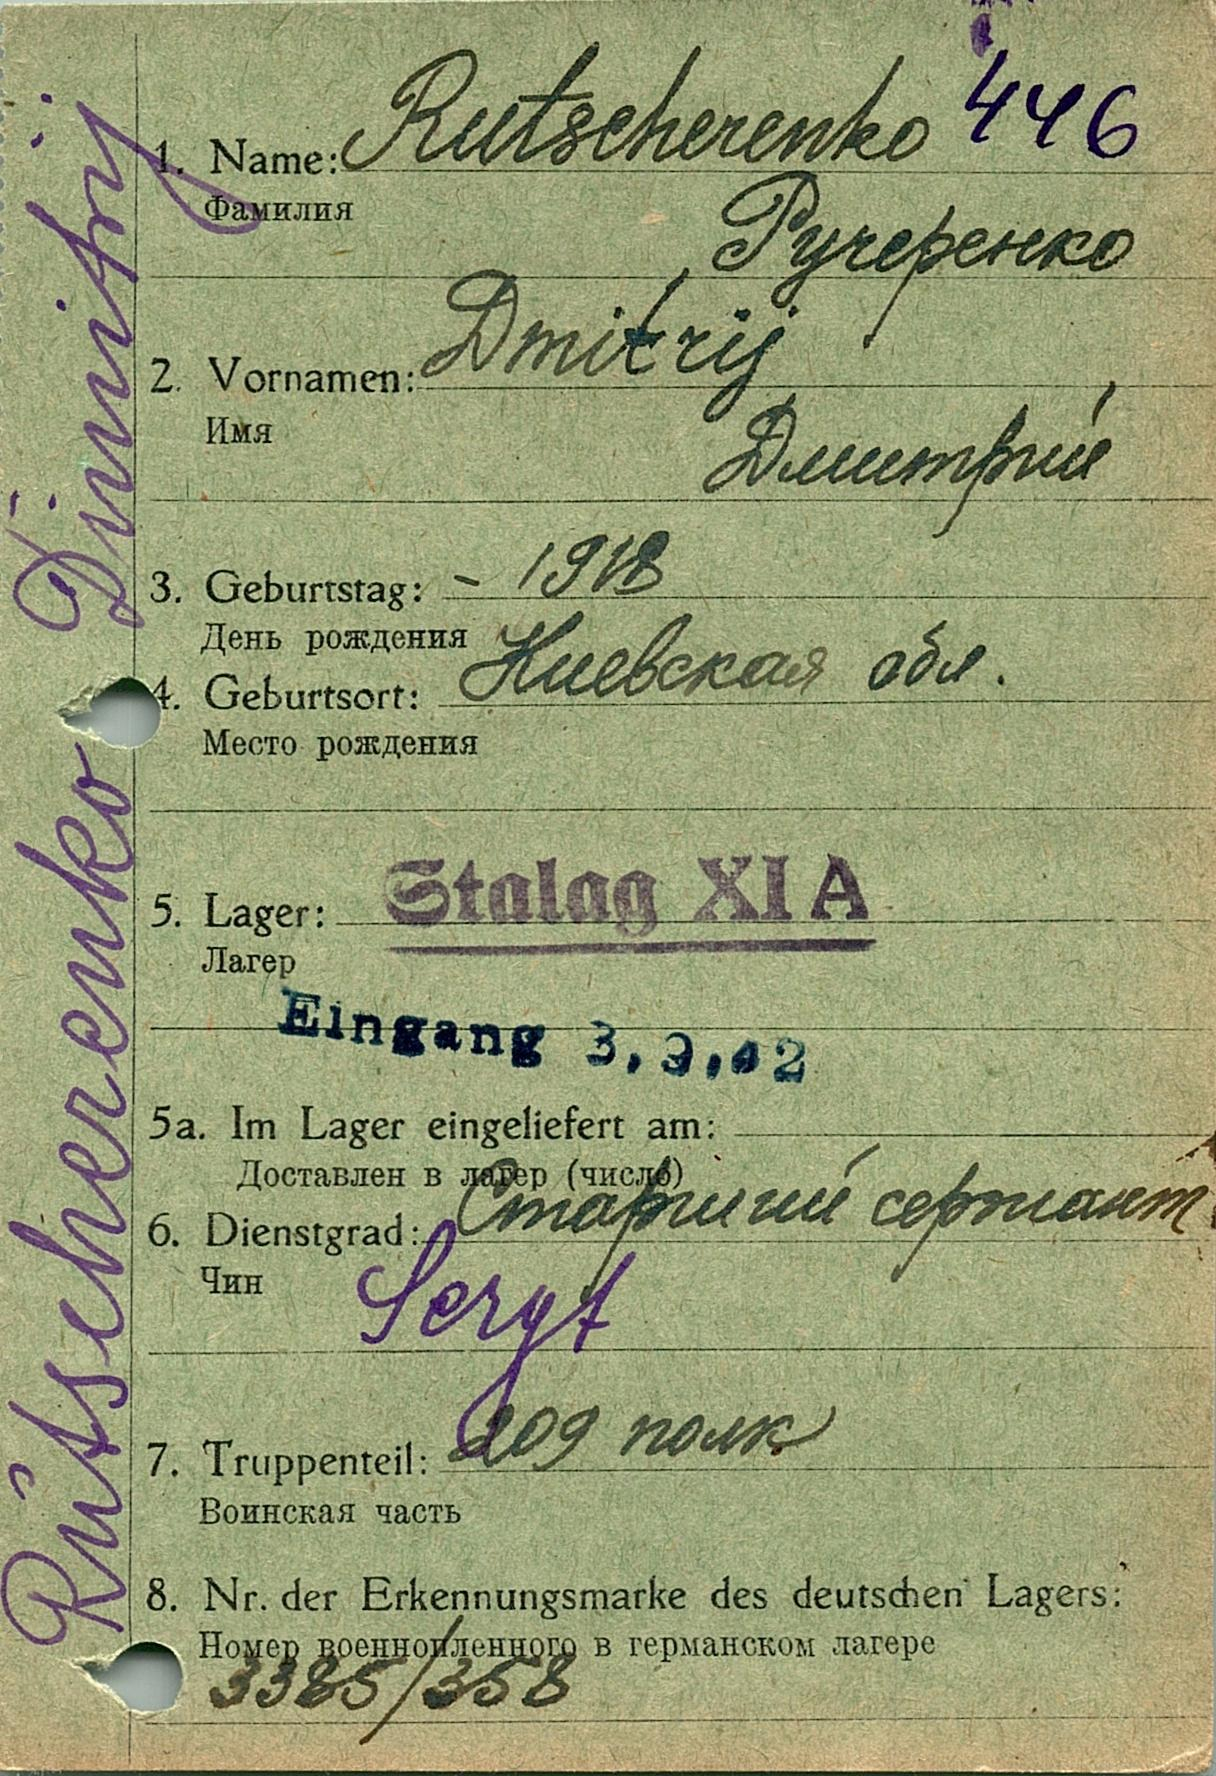 Rutscherenko Dimitrij
446
1. Name: Rutscherenko
Фамилия
Ручеренко
2. Vornamen: Dmitrij
Имя
Дмитрий
3. Geburtstag: - 1918
День рождения
4. Geburtsort: Киевская обл.
Место рождения
5. Lager: Stalag XI A
Лагер
Eingang 3.9.42
5a. Im Lager eingeliefert am:
Доставлен в лагер (число)
6. Dienstgrad: Старший сержант
Чин
Sergt
7. Truppenteil: 209 полк
Воинская часть
8. Nr. der Erkennungsmarke des deutschen Lagers:
Номер военнопленного в германском лагере
3385/358